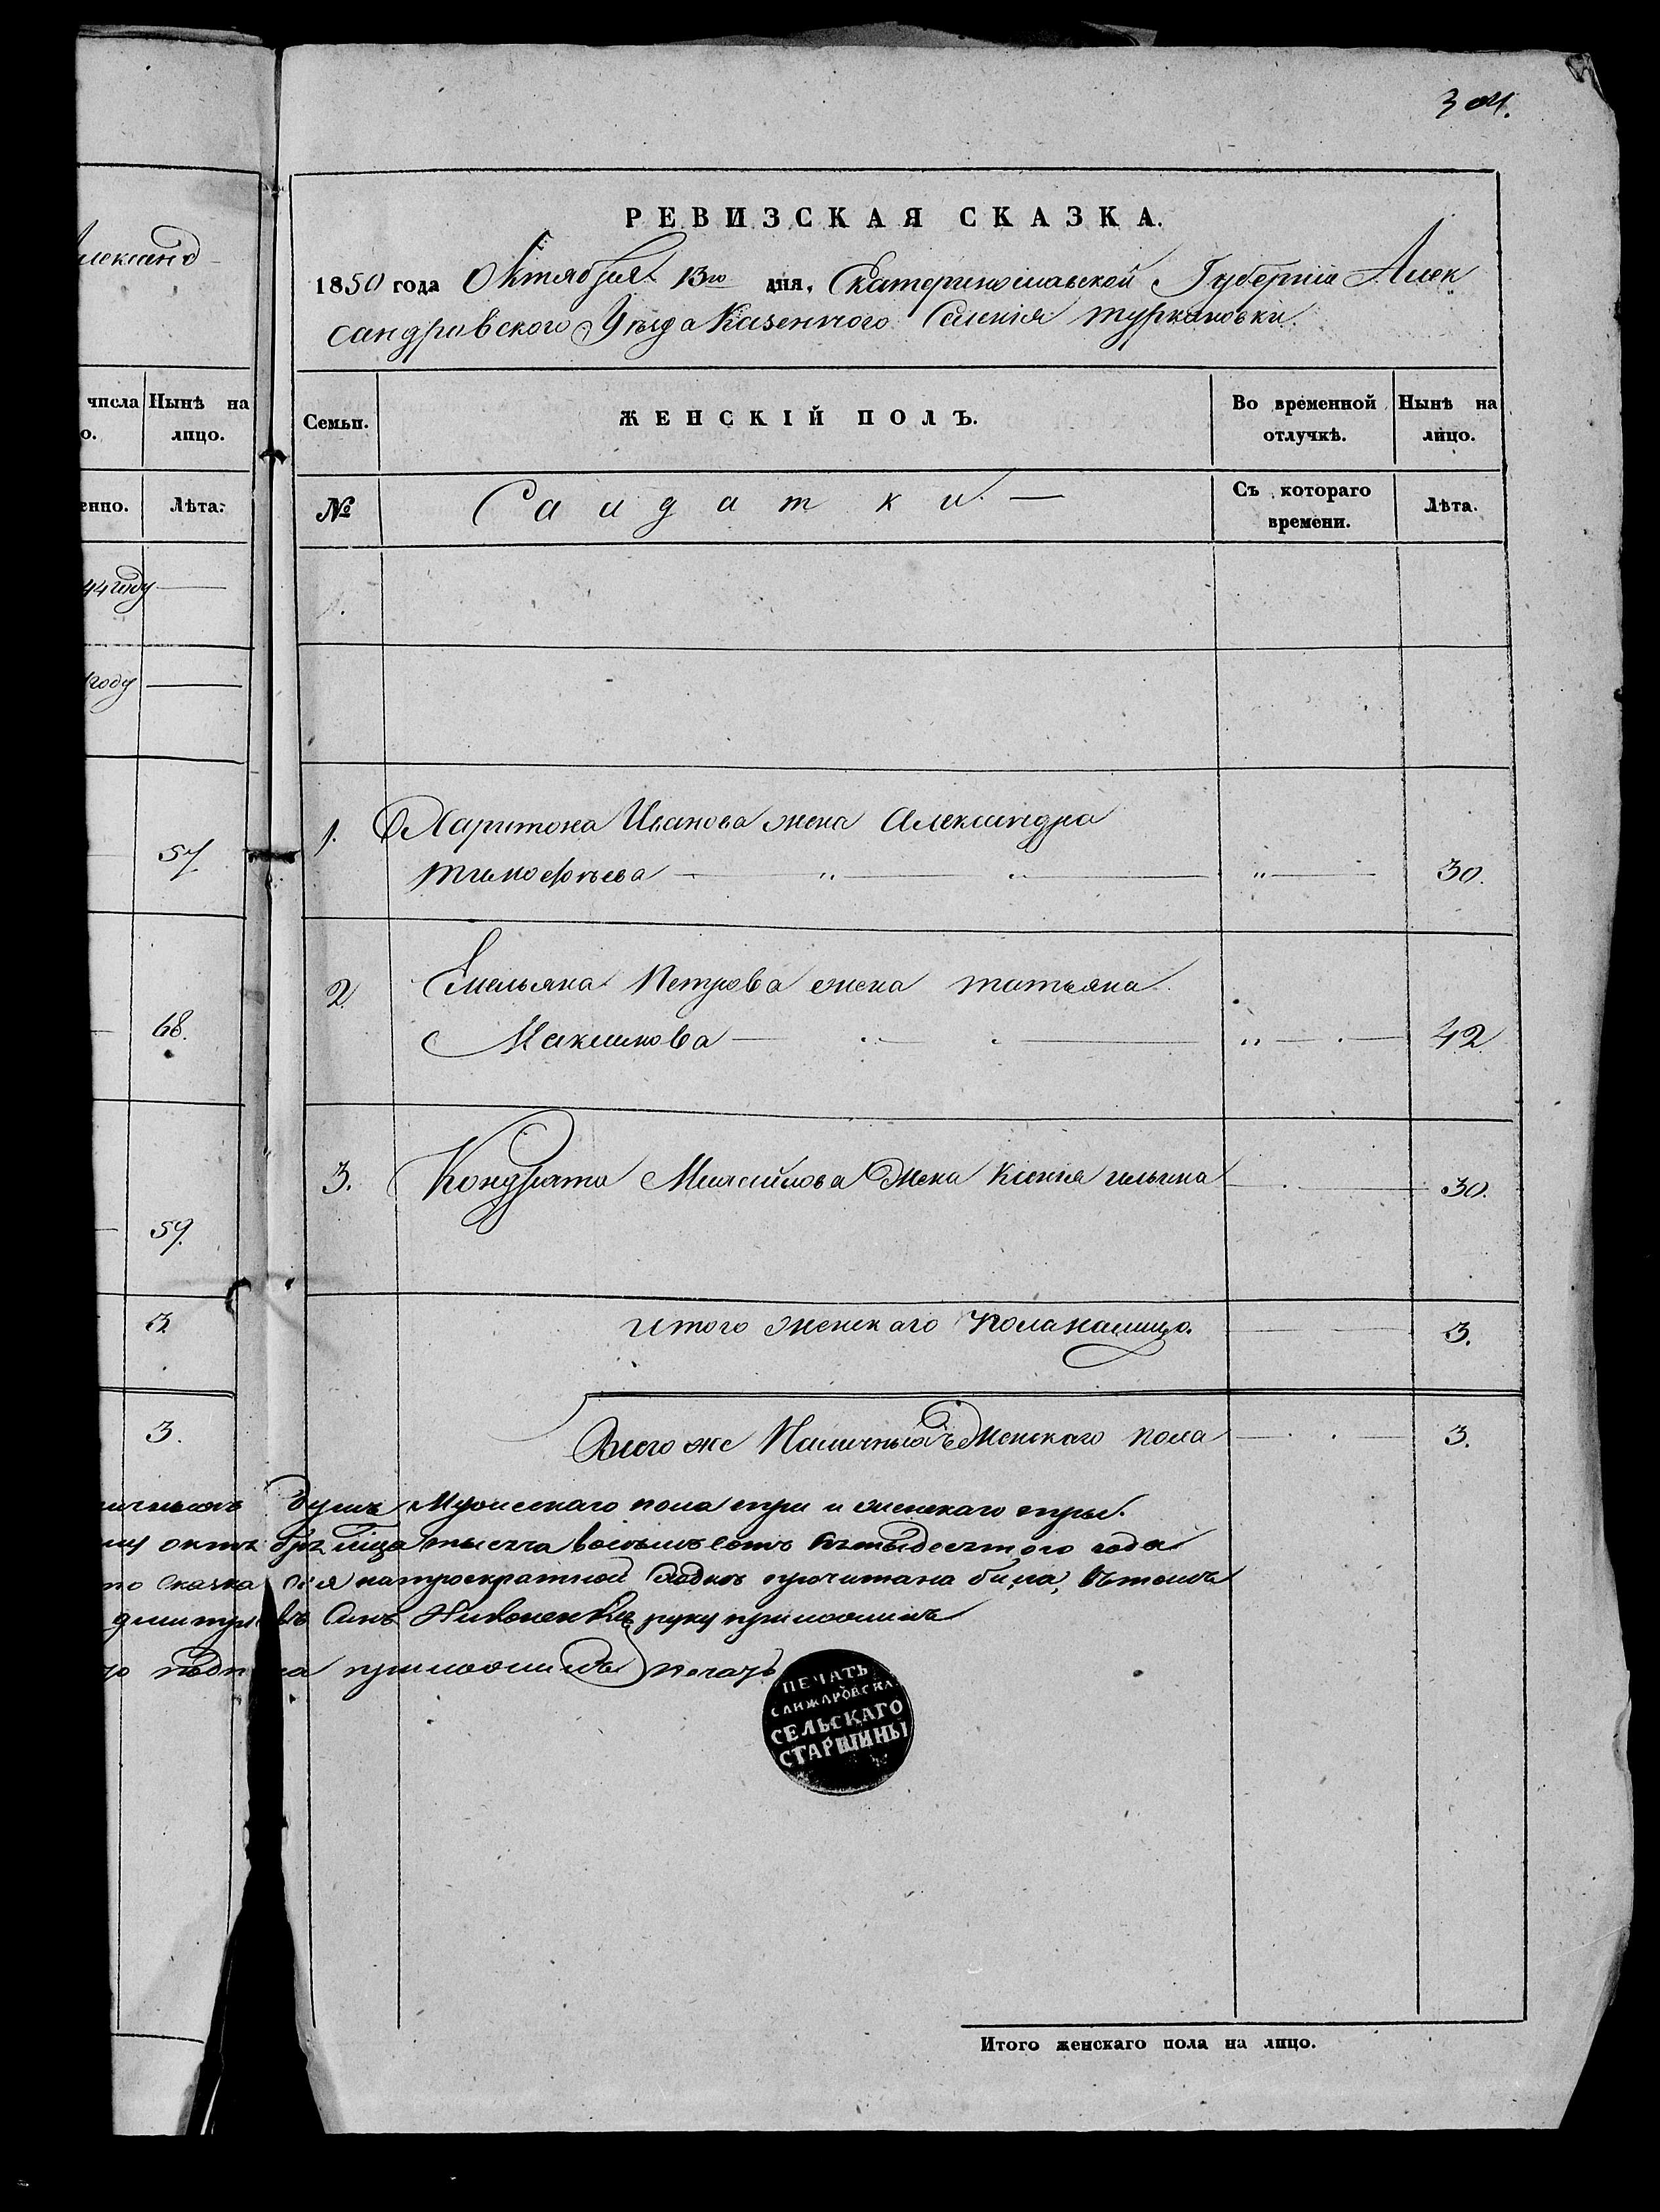 304.
Александ
числа Нынѣ на
о. лицо.
енно. Лѣта.
44 году
году
57
68.
59.
3
3.
РЕВИЗСКАЯ СКАЗКА.
1850 года Октября 13го дня, Екатеринославской Губерніи Алек
сандровского Уѣзда Казенного Селенія Туркановки.
Семьи. ЖЕНСКІЙ ПОЛЪ. Во временной Нынѣ на
отлучкѣ. лицо.
№ Салдатки. Съ котораго Лѣта.
времени.
1. Харитона Иванова жена Александра
тимофѣева 30.
2 Емельяна Петрова жена татьяна
Максимова 42
3. Кондрата Михайлова жена Ксенія ильина 30.
итого женскаго пола налицо. 3.
Всего же Наличныхъ женскаго пола 3.
душъ Мужескаго пола три и женскаго тры.
тысяча восымъ сотъ пятыдесятого года
сказка сія натроекратной сходкѣ прочитана была, вътомъ
дмитріевъ Синъ руку приложилъ
приложилъ печать
ПЕЧАТЬ
САНЖАРОВСКА
СЕЛЬСКАГО
СТАРШИНЫ
Итого женскаго пола на лицо.